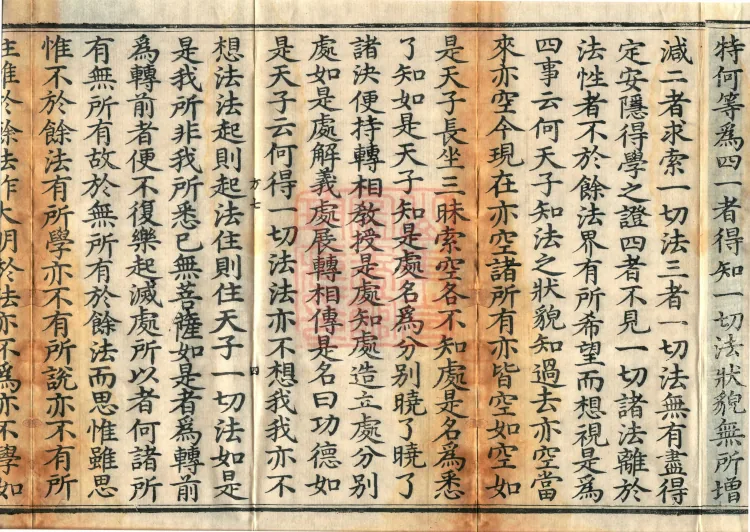 特何等為四一者得知一切法狀貌無所增
減二者求索一切法三者一切法無有盡得
定安隱得學之證四者不見一切諸法離於
法性者不於餘法界有所希望而想視是為
四事云何天子知法之狀貌知過去亦空當
來亦空今現在亦空諸所有亦皆空如空如
是天子長坐三昧索空各不知處是名為悉
了知如是天子知是處名為分別曉了曉了
諸決便持轉相教授是處知處造立處分別
處如是處解義處展轉相傳是名曰功德如
是天子云何得一切法法亦不想我我亦不
方七 四
想法法起則起法住則住天子一切法如是
是我所非我所悉已無菩薩如是者為轉前
為轉前者便不復樂起滅處所以者何諸所
有無所有故於無所有於餘法而思惟雖思
惟不於餘法有所學亦不有所說亦不有所
住唯於餘法作大明於法亦不為亦不學如